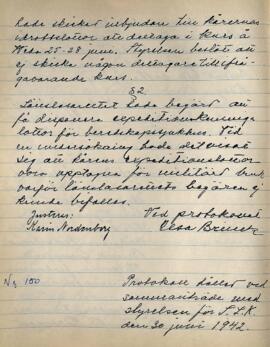 hade skickat inbjudan till kårernas
idrottslottor att deltaga i kurs å
25-28 juni. Styrelsen beslöt att
ej skicka någon deltagare till ifrå-
gavarande kurs.
§2
Länslasarettet hade begärt att
få disponera expeditionskunniga
lottor för beredskapssjukhus. Vid
en undersökning hade det visat
sig att kårens expeditionslottor
voro upptagna för militärt bruk
varför länslasarettets begäran ej
kunde bifallas.
Justeras: Vid protokollet
Karin Nordenborg Elsa
Nr 150 Protokoll hållet vid
sammanträde med
styrelsen för S.L.K.
den 30 juni 1942.